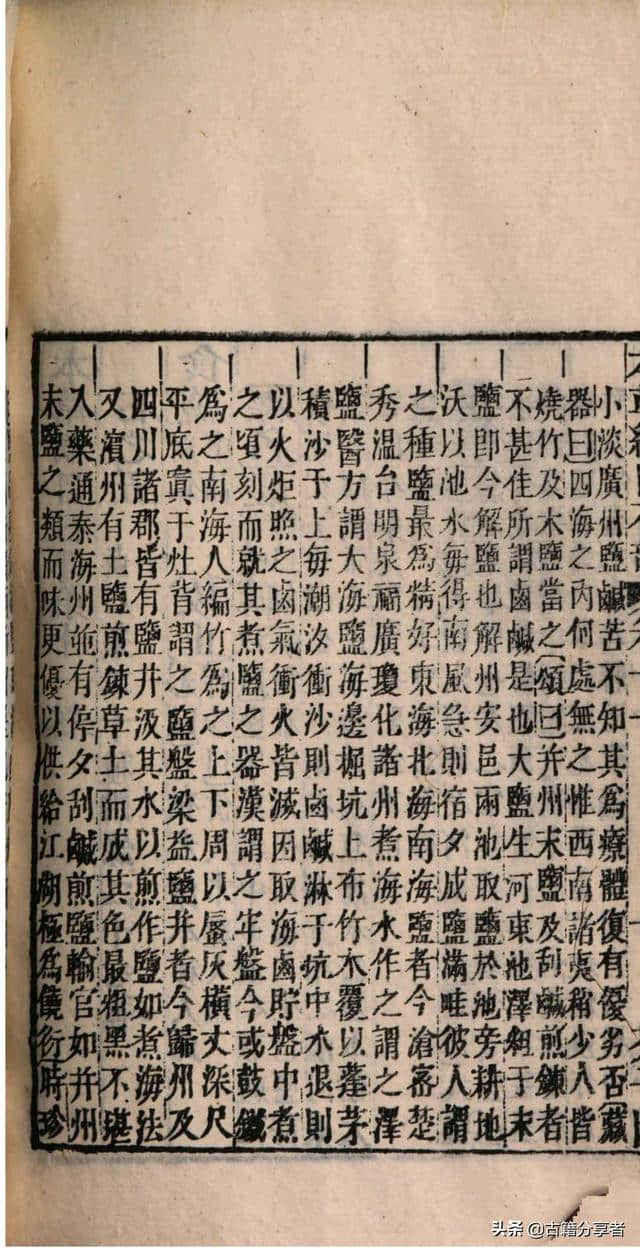 小淡廣州鹽鹹苦不知其爲療體復有優劣否藏
器曰四海之內何處無之惟西南諸夷稍少人皆
燒竹及木鹽當之頌曰并州末鹽及刮鹹煎鍊者
不甚佳所謂鹵鹹是也大鹽生河東池澤粗于末
鹽即今解鹽也解州安邑兩池取鹽於池旁耕地
沃以池水每得南風急則宿夕成鹽滿畦彼人謂
之種鹽最爲精好東海北海南海鹽者今滄密楚
秀溫台明泉福廣瓊化諸州煮海水作之謂之澤
鹽醫方謂大海鹽海邊掘坑上布竹木覆以蓬茅
積沙于上每潮汐衝沙則鹵鹹淋于坑中水退則
以火炬照之鹵氣衝火皆滅因取海鹵貯盤中煮
之頃刻而就其煮鹽之器漢謂之牢盤今或鼓鐵
爲之南海人編竹爲之上下周以蜃灰橫丈深尺
平底寘于灶背謂之鹽盤梁益鹽井者今歸州及
四川諸郡皆有鹽井汲其水以煎作鹽如煮海法
又濱州有土鹽煎鍊草土而成其色最粗黑不堪
入藥通泰海州並有停夕刮鹹煎鹽輸官如并州
末鹽之類而味更優以供給江湖極爲饒衍時珍
头条 @古籍分享者